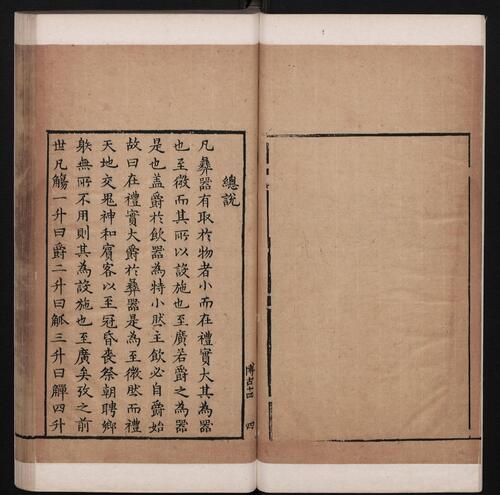 總說
凡彝器有取於物者小而在禮實大其為器
也至微而其所以設施也至廣若爵之為器
是也盖爵於飲器為特小然主飲必自爵始
故曰在禮實大爵於彝器是為至微然而禮
天地交鬼神和賓客以至冠昏喪祭朝聘鄉
射無所不用則其為設施也至廣矣攷之前
世凡觴一升曰爵二升曰觚三升曰觶四升
博古十四
四